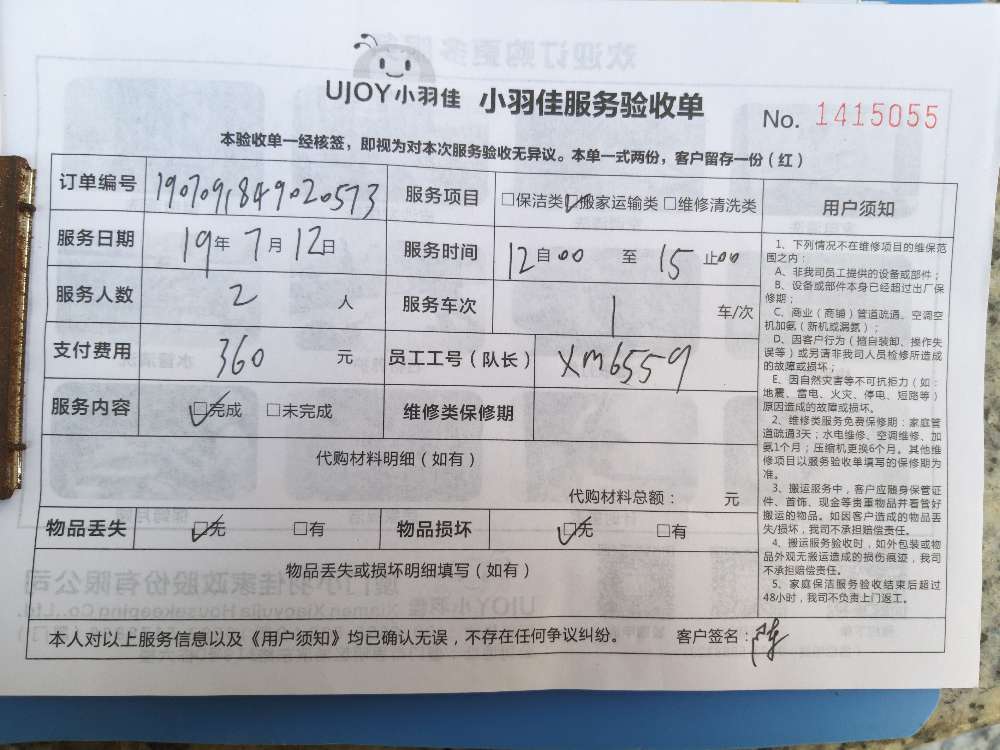 UJOY小羽佳 小羽佳服务验收单 No. 1415055
本验收单一经核签，即视为对本次服务验收无异议。本单一式两份，客户留存一份（红）
订单编号 190709184902057​3 服务项目 □保洁类 □搬家运输类 □维修清洗类
服务日期 19年7月12日 服务时间 12自00 至 15止00
服务人数 2 人 服务车次 1 车/次
支付费用 360 元 员工工号（队长） XM6559
服务内容 □完成 □未完成 维修类保修期
代购材料明细（如有）
代购材料总额： 元
物品丢失 □无 □有 物品损坏 □无 □有
物品丢失或损坏明细填写（如有）
用户须知
1、下列情况不在维修项目的维保范
围之内：
A、非我司员工提供的设备或部件；
B、设备或部件本身已经超过出厂保
修期；
C、商业（商铺）管道疏通、空调空
机加氨（新机或漏氨）；
D、因客户行为（擅自装卸、操作失
误等）或另请非我司人员检修所造成
的故障或损坏；
E、因自然灾害等不可抗拒力（如：
地震、雷电、火灾、停电、短路等）
原因造成的故障或损坏。
2、维修类服务免费保修期：家庭管
道疏通3天；水电维修、空调维修、加
氨1个月；压缩机更换6个月。其他维
修项目以服务验收单填写的保修期为
准。
3、搬运服务中，客户应随身保管证
件、首饰、现金等贵重物品并看管好
搬运的物品。如因客户造成的物品丢
失/损坏，我司不承担赔偿责任。
4、搬运服务验收时，如外包装或物
品外观无搬运造成的损伤痕迹，我司
不承担赔偿责任。
5、家庭保洁服务验收结束后超过
48小时，我司不负责上门返工。
本人对以上服务信息以及《用户须知》均已确认无误，不存在任何争议纠纷。 客户签名：陈